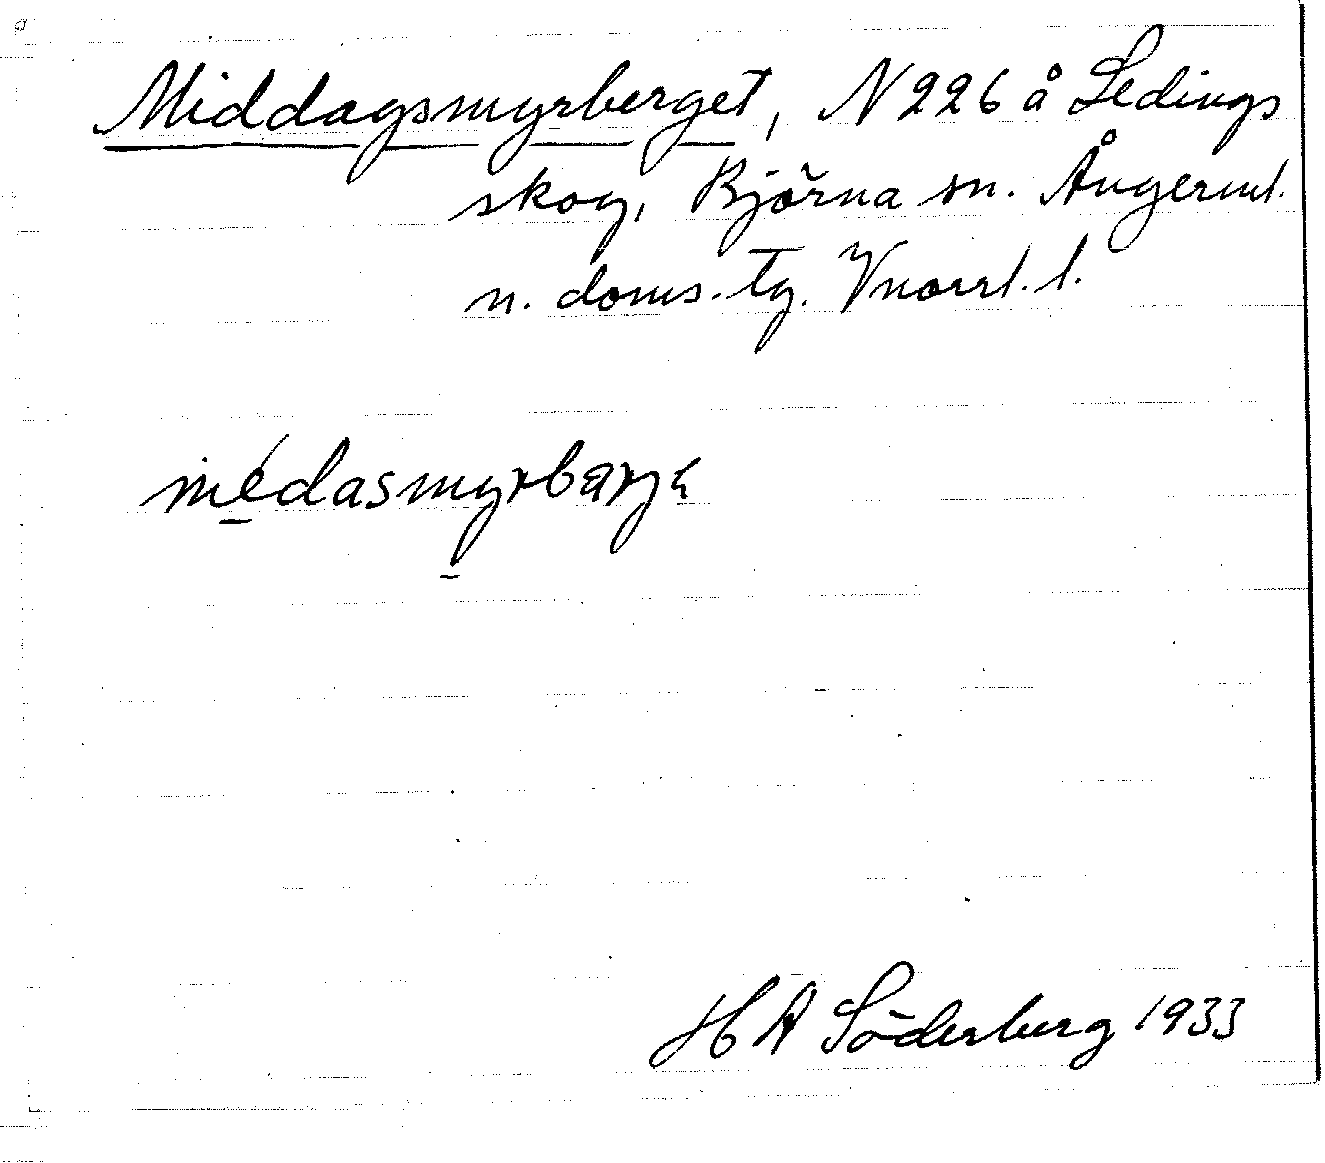 Middagsmyrberget, N 226 å Ledings
skog, Björna sn. Ångerml.
n. doms. tg. Vnorrl. l.
médasmyrbärjə
H A Söderberg 1933